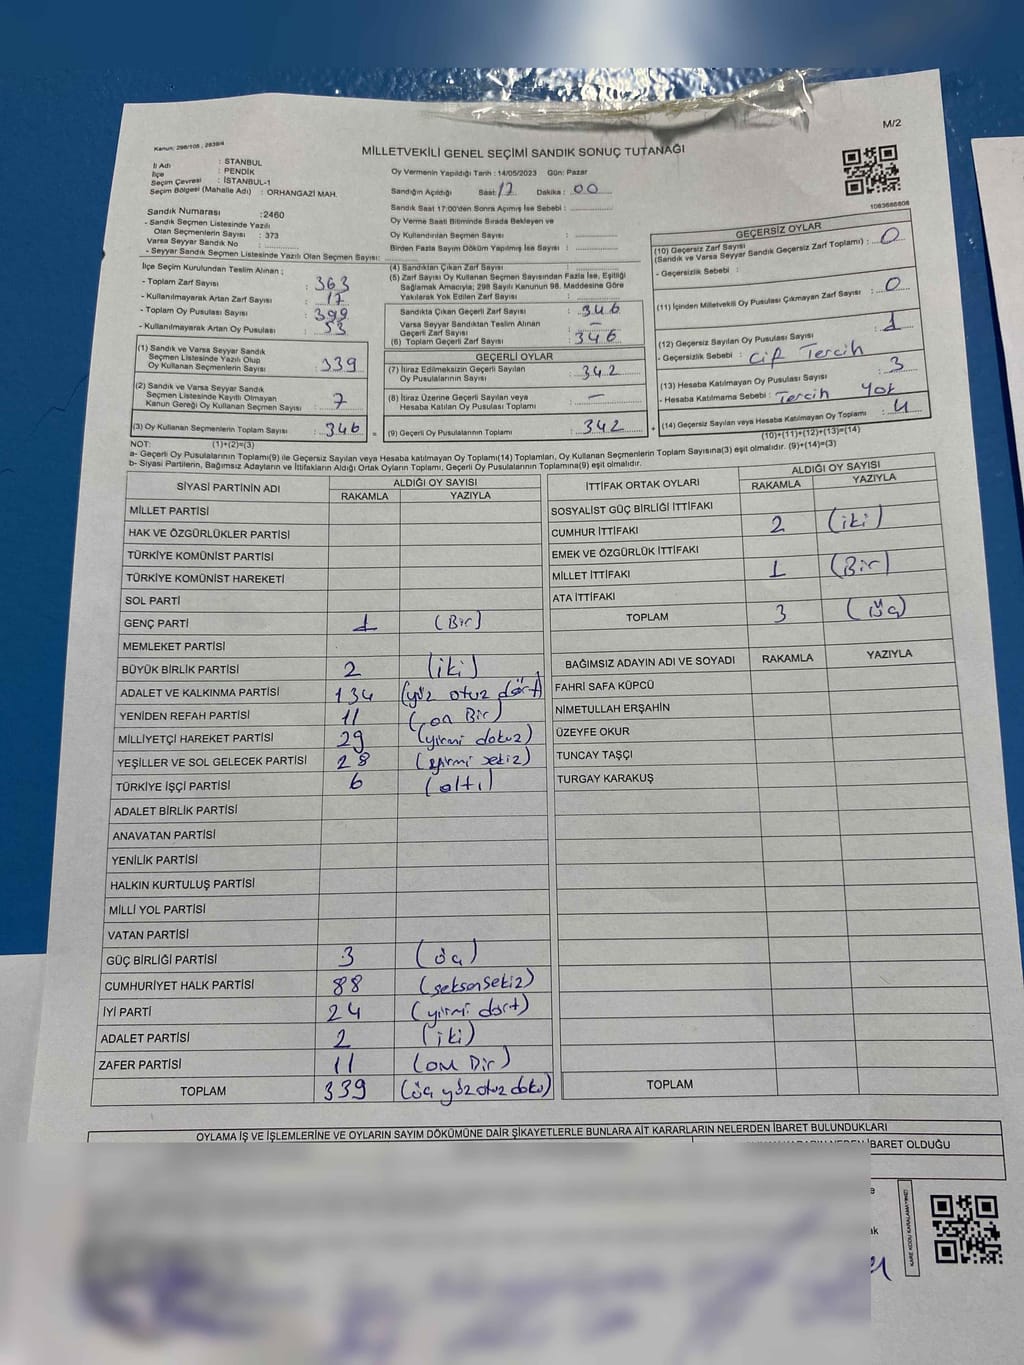 M/2
Kanun: 298/105 , 2839/4
MİLLETVEKİLİ GENEL SEÇİMİ SANDIK SONUÇ TUTANAĞI
İl Adı : STANBUL
İlçe : PENDİK
Seçim Çevresi : İSTANBUL-1
Seçim Bölgesi (Mahalle Adı) : ORHANGAZİ MAH.
Sandık Numarası :2460
- Sandık Seçmen Listesinde Yazılı
Olan Seçmenlerin Sayısı : 373
Varsa Seyyar Sandık No :
- Seyyar Sandık Seçmen Listesinde Yazılı Olan Seçmen Sayısı:
İlçe Seçim Kurulundan Teslim Alınan ;
- Toplam Zarf Sayısı : 363
- Kullanılmayarak Artan Zarf Sayısı : 17
- Toplam Oy Pusulası : 399
- Kullanılmayarak Artan Oy Pusulası : 53
(1) Sandık ve Varsa Seyyar Sandık
Seçmen Listesinde Yazılı Olup
Oy Kullanan Seçmenlerin Sayısı : 339
(2) Sandık ve Varsa Seyyar Sandık
Seçmen Listesinde Kayıtlı Olmayan
Kanun Gereği Oy Kullanan Seçmen Sayısı : 7
(3) Oy Kullanan Seçmenlerin Toplam Sayısı : 346
Oy Vermenin Yapıldığı Tarih : 14/05/2023 Gün: Pazar
Sandığın Açıldığı Saat: 17 Dakika : 00
Sandık Saat 17:00'den Sonra Açımış İse Sebebi :
Oy Verme Saati Bitiminde Sırada Bekleyen ve
Oy Kullandırılan Seçmen Sayısı :
Birden Fazla Sayım Döküm Yapılmış İse Sayısı :
(4) Sandıktan Çıkan Zarf Sayısı :
(5) Zarf Sayısı Oy Kullanan Seçmen Sayısından Fazla İse, Eşitliği
Sağlamak Amacıyla; 298 Sayılı Kanunun 98. Maddesine Göre
Yakılarak Yok Edilen Zarf Sayısı :
Sandıkta Çıkan Geçerli Zarf Sayısı : 346
Varsa Seyyar Sandıktan Teslim Alınan
Geçerli Zarf Sayısı : –
(6) Toplam Geçerli Zarf Sayısı : 346
GEÇERLİ OYLAR
(7) İtiraz Edilmeksizin Geçerli Sayılan
Oy Pusulalarının Sayısı : 342
(8) İtiraz Üzerine Geçerli Sayılan veya
Hesaba Katılan Oy Pusulası Toplamı : –
= (9) Geçerli Oy Pusulalarının Toplamı : 342 +
1083686808
GEÇERSİZ OYLAR
(10) Geçersiz Zarf Sayısı
(Sandık ve Varsa Seyyar Sandık Geçersiz Zarf Toplamı) : 0
- Geçersizlik Sebebi :
(11) İçinden Milletvekili Oy Pusulası Çıkmayan Zarf Sayısı : 0
(12) Geçersiz Sayılan Oy Pusulası Sayısı : 1
- Geçersizlik Sebebi : Cif Tercih
(13) Hesaba Katılmayan Oy Pusulası Sayısı : 3
- Hesaba Katılmama Sebebi : Tercih Yok
(14) Geçersiz Sayılan veya Hesaba Katılmayan Oy Toplamı : 4
(10)+(11)+(12)+(13)=(14)
NOT: (1)+(2)=(3)
a- Geçerli Oy Pusulalarının Toplamı(9) ile Geçersiz Sayılan veya Hesaba katılmayan Oy Toplamı(14) Toplamları, Oy Kullanan Seçmenlerin Toplam Sayısına(3) eşit olmalıdır. (9)+(14)=(3)
b- Siyasi Partilerin, Bağımsız Adayların ve İttifakların Aldığı Ortak Oyların Toplamı, Geçerli Oy Pusulalarının Toplamına(9) eşit olmalıdır.
SİYASİ PARTİNİN ADI ALDIĞI OY SAYISI
RAKAMLA YAZIYLA
MİLLET PARTİSİ
HAK VE ÖZGÜRLÜKLER PARTİSİ
TÜRKİYE KOMÜNİST PARTİSİ
TÜRKİYE KOMÜNİST HAREKETİ
SOL PARTİ
GENÇ PARTİ 1 (Bir)
MEMLEKET PARTİSİ
BÜYÜK BİRLİK PARTİSİ 2 (iki)
ADALET VE KALKINMA PARTİSİ 134 (yüz otuz dört)
YENİDEN REFAH PARTİSİ 11 (on Bir)
MİLLİYETÇİ HAREKET PARTİSİ 29 (yirmi dokuz)
YEŞİLLER VE SOL GELECEK PARTİSİ 28 (yirmi sekiz)
TÜRKİYE İŞÇİ PARTİSİ 6 (altı)
ADALET BİRLİK PARTİSİ
ANAVATAN PARTİSİ
YENİLİK PARTİSİ
HALKIN KURTULUŞ PARTİSİ
MİLLİ YOL PARTİSİ
VATAN PARTİSİ
GÜÇ BİRLİĞİ PARTİSİ 3 (üç)
CUMHURİYET HALK PARTİSİ 88 (seksensekiz)
İYİ PARTİ 24 (yirmi dört)
ADALET PARTİSİ 2 (iki)
ZAFER PARTİSİ 11 (on Bir)
TOPLAM 339 (üç yüz otuz doku)
İTTİFAK ORTAK OYLARI ALDIĞI OY SAYISI
RAKAMLA YAZIYLA
SOSYALİST GÜÇ BİRLİĞİ İTTİFAKI
CUMHUR İTTİFAKI 2 (iki)
EMEK VE ÖZGÜRLÜK İTTİFAKI
MİLLET İTTİFAKI 1 (Bir)
ATA İTTİFAKI
TOPLAM 3 (üç)
BAĞIMSIZ ADAYIN ADI VE SOYADI RAKAMLA YAZIYLA
FAHRİ SAFA KÜPCÜ
NİMETULLAH ERŞAHİN
ÜZEYFE OKUR
TUNCAY TAŞÇI
TURGAY KARAKUŞ
TOPLAM
OYLAMA İŞ VE İŞLEMLERİNE VE OYLARIN SAYIM DÖKÜMÜNE DAİR ŞİKAYETLERLE BUNLARA AİT KARARLARIN NELERDEN İBARET BULUNDUKLARI
İBARET OLDUĞU
KARE KODU KARALAMAYINIZ!